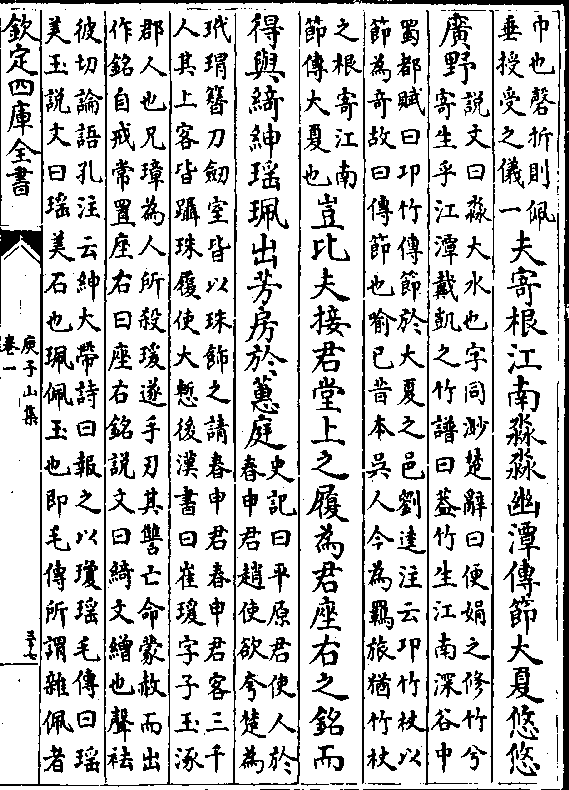 巾也磬折則佩
垂授受之儀一
夫寄根江南淼淼幽潭傳節大夏悠悠
廣野
說文曰淼大水也字同渺楚辭曰便娟之修竹兮
寄生乎江潭戴凱之竹譜曰葢竹生江南深谷中
蜀都賦曰邛竹傳節於大夏之邑劉逵注云邛竹杖以
節為奇故曰傳節也喻已昔本吳人今為羈旅猶竹杖
之根寄江南
節傳大夏也
豈比夫接君堂上之履為君座右之銘而
得與綺紳瑶珮出芳房於蕙庭
史記曰平原君使人於
春申君趙使欲夸楚為
玳瑁簪刀劒室皆以珠飾之請春申君春申君客三千
人其上客皆躡珠履使大慙後漢書曰崔瑗字子玉涿
郡人也兄璋為人所殺瑗遂手刃其讐亡命蒙赦而出
作銘自戒常置座右曰座右銘說文曰綺文繒也聲袪
彼切論語孔注云紳大帶詩曰報之以瓊瑶毛傳曰瑶
美玉說文曰瑶美石也珮佩玉也即毛傳所謂雜佩者
欽定四庫全書
庾子山集
卷一